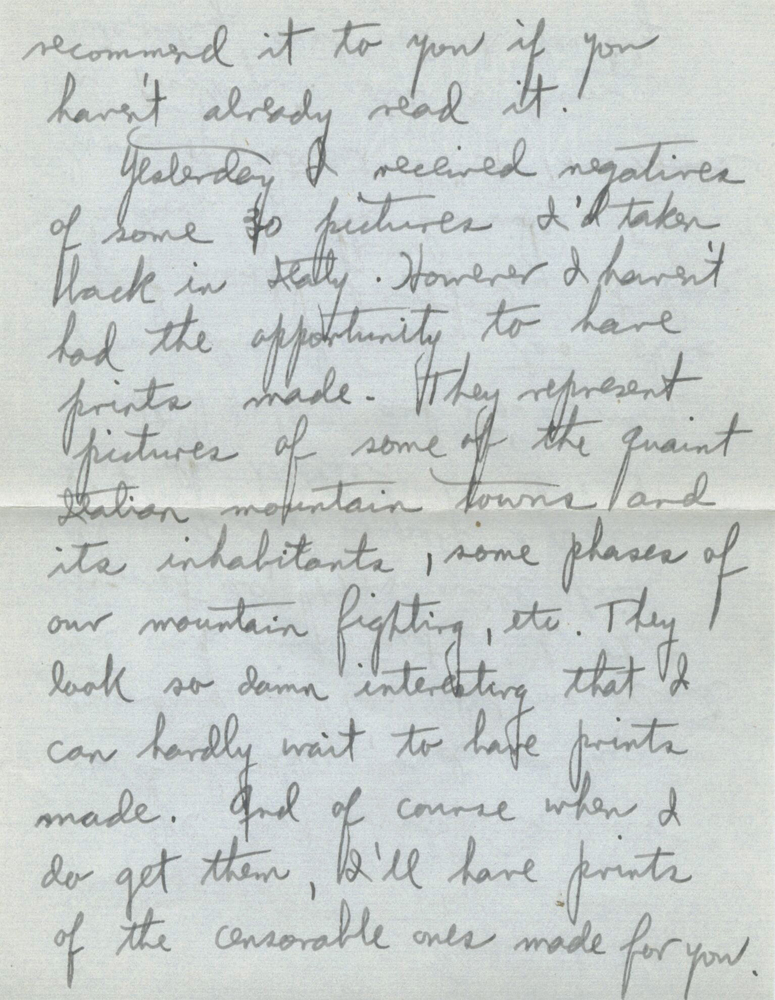 recommend it to you if you
haven't already read it.
Yesterday I received negatives
of some 30 pictures I'd taken
back in Italy. However I haven't
had the opportunity to have
prints made. They represent
pictures of some of the quaint
Italian mountain towns and
its inhabitants, some phases of
our mountain fighting, etc. They
look so damn interesting that I
can hardly wait to have prints
made. And of course when I
do get them, I'll have prints
of the censorable ones made for you.